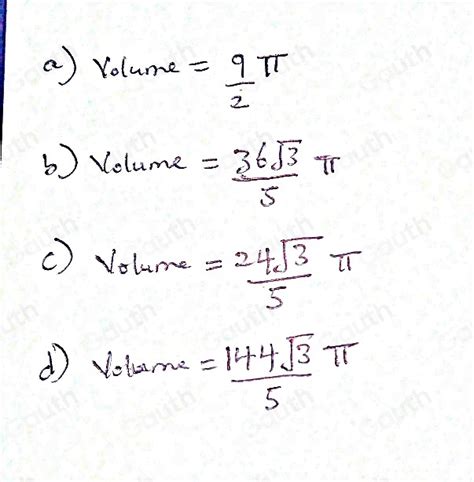 a) Volume = 9/2 π
b) Volume = 36√3/5 π
c) Volume = 24√3/5 π
d) Volume = 144√3/5 π